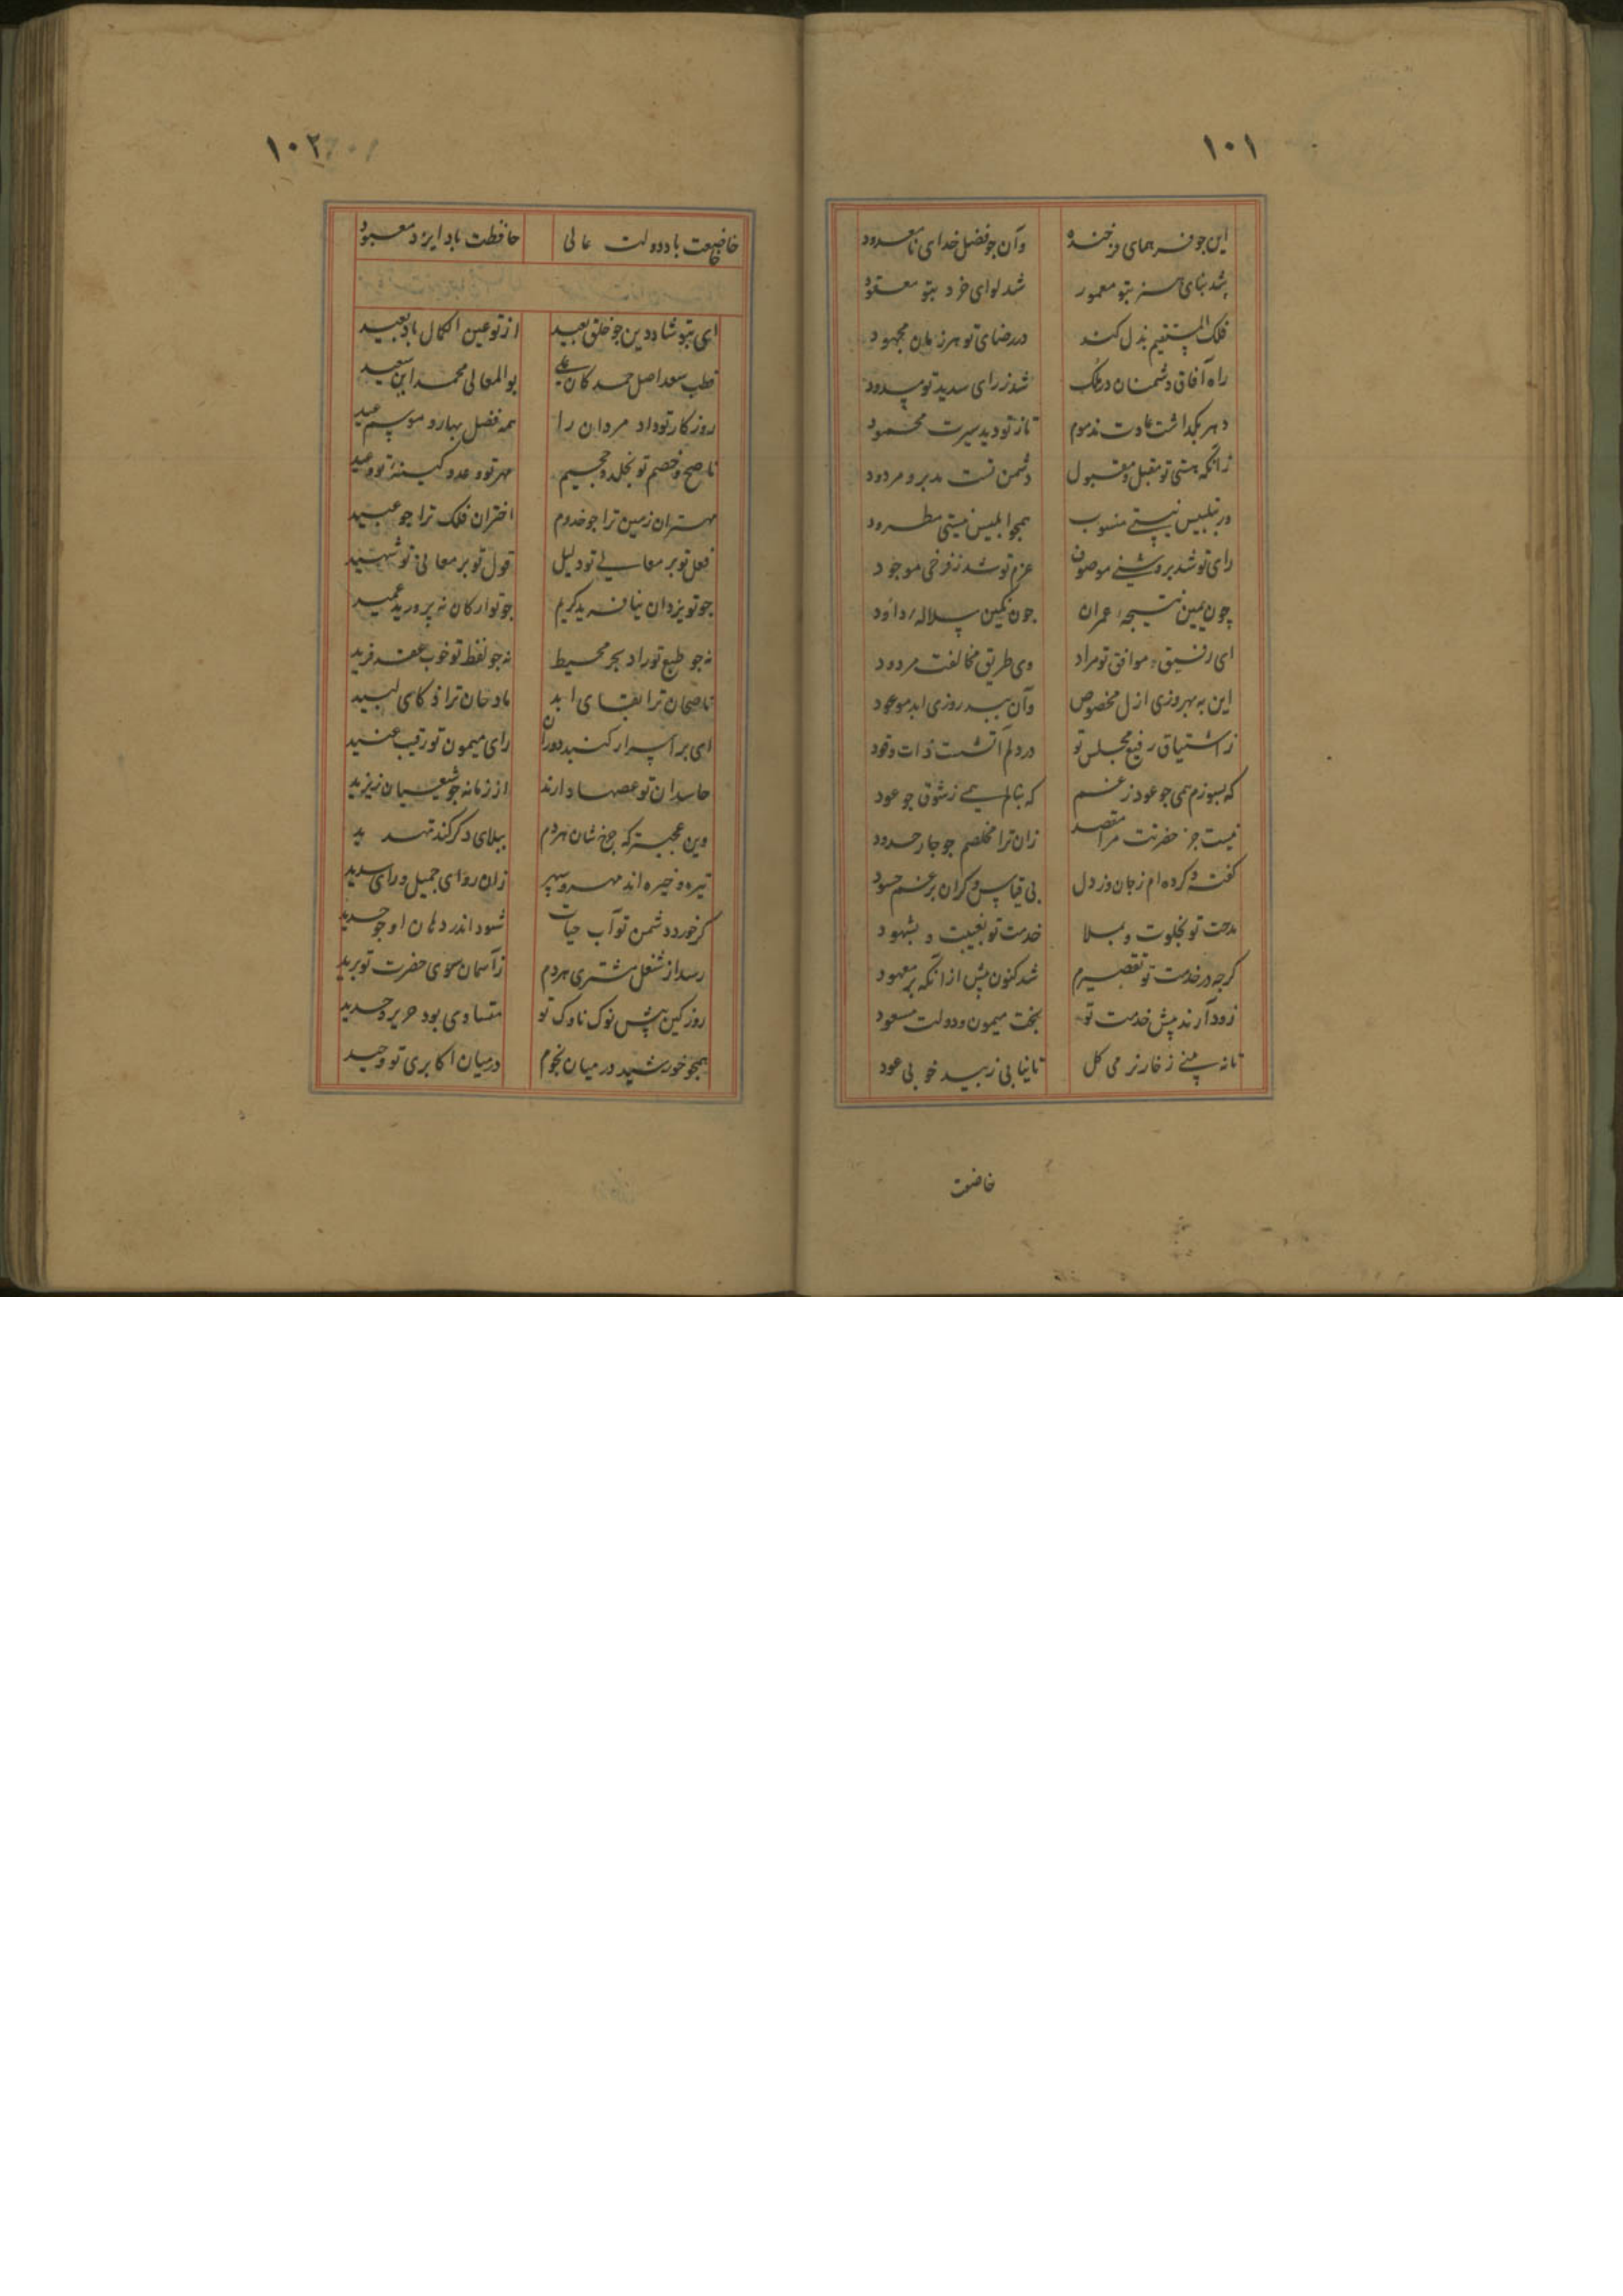 ۱۰۱
این جو فر همای فرخنده وآن جو فضل خدای نامعدود
شد بنای هنر بتو معمور شد لوای خرد بتو معقود
فلک المستقیم بذل کند در رضای تو هر زمان مجهود
راه آفاق دشمنان در ملک شد ز رای سدید تو مسدود
دهر بکذاشت عادت مذموم تا ز تو دید سیرت محمود
زانکه هستی تو مقبل و مقبول دشمن تست مدبر و مردود
در تلبیس نیستی منسوب همجو ابلیس نیستی مطرود
رای تو شد بروشنی موصوف عزم تو شد ز فرخی موجود
چون یمین نتیجهٔ عمران جون نکین سلالهٔ داود
ای رفیق موافق تو مراد وی طریق مخالفت مردود
این به بهروزی ازل مخصوص وآن ببد روزی ابد موعود
ز اشتیاق رفیع مجلس تو در دلم آتشست ذات وقود
که بسوزم همی جو عود ز غم که بنالم همی ز شوق جو عود
نیست جز حضرتت مرا مقصد زان ترا مخلصم جو جار حدود
کفته و کرده ام ز جان وز دل بی قیاس و کران برغم حسود
مدحت تو بخلوت و بملا خدمت تو بغیبت و بشهود
کرجه در خدمت تو تقصیرم شد کنون پیش ازانکه بر معهود
زود آرند پیش خدمت تو بخت میمون و دولت مسعود
تا نه بینی ز خار نرمی کل تا نیابی ز بید خوبی عود
خاضعت
۱۰۲
خاضعت باد دولت عالی حافظت باد ایزد معبود
ای بتو شاد دین جو خلق بعید از تو عین الکمال باد بعید
قطب سعد اصل حمد کان علی بو المعالی محمد ابن سعید
روزکار تو داد مردان را همه فصل بهار و موسم عید
ناصح و خصم تو بخلد و جحیم مهر تو وعد و کینهٔ تو وعید
مهتران زمین ترا جو خدوم اختران فلک ترا جو عبید
فعل تو بر معانی تو دلیل قول تو بر معالی تو شهید
جو تو یزدان نیافرید کریم جو تو ارکان نپرورید عمید
نه جو طبع تو راد بحر محیط نه جو لفظ تو خوب عقد فرید
ناصحان ترا بقای ابد مادحان ترا ذکای لبید
ای بر اسرار کنبد دوران رای میمون تو رقیب عتید
حاسدان تو غصها دارند از زمانه جو شیعیان ز یزید
وین عجبتر که جرخ شان هر دم ببلای دکر کند تهدید
تیره و خیره اند مهر و سپهر زان روای جمیل و رای سدید
کر خورد دشمن تو آب حیات شود اندر دهان او جو حدید
رسد از شغل مشتری هر دم ز آسمان سوی حضرت تو برید
روز کین پیش نوک ناوک تو متساوی بود حریر و حدید
همجو خورشید در میان نجوم در میان اکابری تو وحید